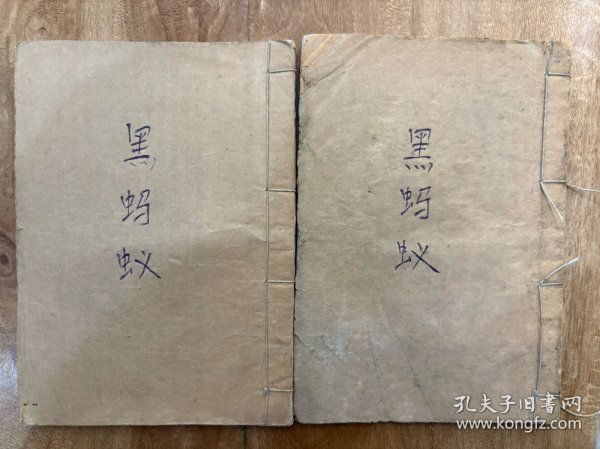 黑蚂蚁
黑蚂蚁
孔夫子旧書网
www.kongfz.com